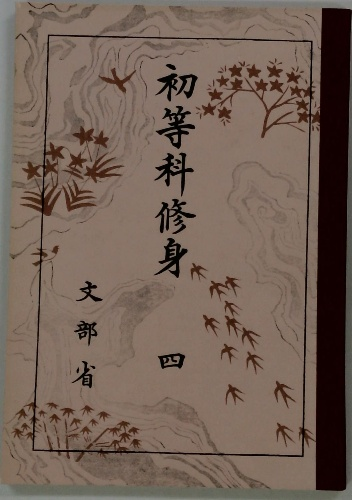 初等科修身 四
文部省